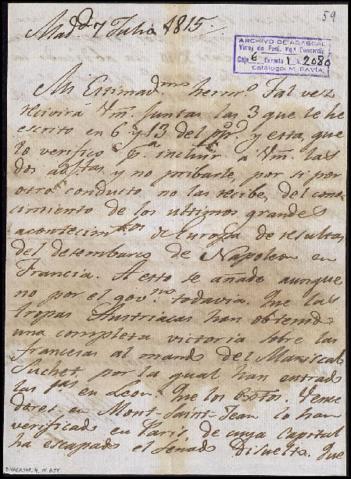 59
Mad.d 7 Julio 1815.
ARCHIVO DE ABASCAL
Virey de Perú, Mqs Concordia
Caja 6 Carpeta 1 n.º 2080
Catálogo M. PAVIA
Mi Estimad.mo herm.o Tal vez
recivirá Vm. juntas las 3 que le he
escrito en 6 y 13 del pp.do y esta, que
lo verifico p.a incluir a Vm. las
dos adjtas y no privarle, por si por
otro conducto no las recibe, del cono-
cimiento de los ultimos grandes
acontecim.tos de Europa de resultas
del desembarco de Napoleon en
Francia. A esto se añade aunque
no por el gov.no todavia, que las
tropas Austriacas han obtenido
una completa victoria sobre las
francesas al mando del Mariscal
Suchet, por la qual han entrado
las p.as en Leon: que los Exttos. Vence
dores en Mont-Saint-Jean lo han
verificado en Paris, de cuya Capital
ha escapado el senado disuelto. Que